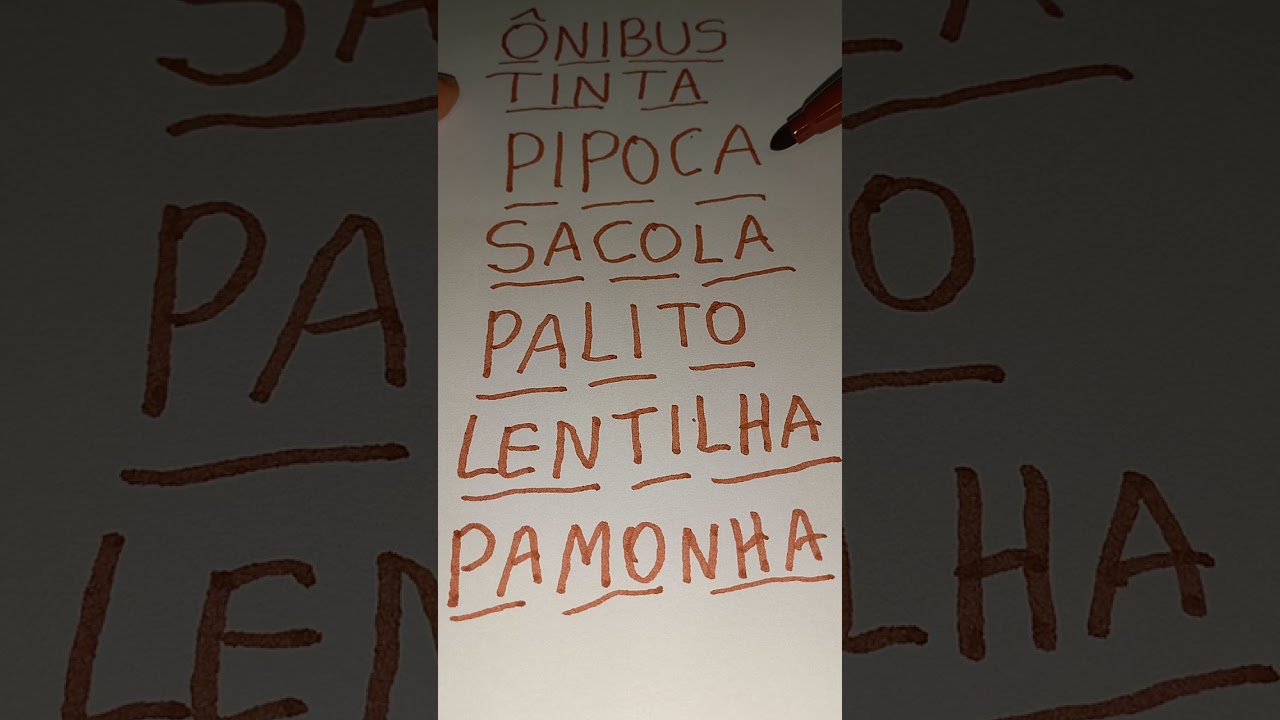 ÔNIBUS
TINTA
PIPOCA
SACOLA
PALITO
LENTILHA
PAMONHA